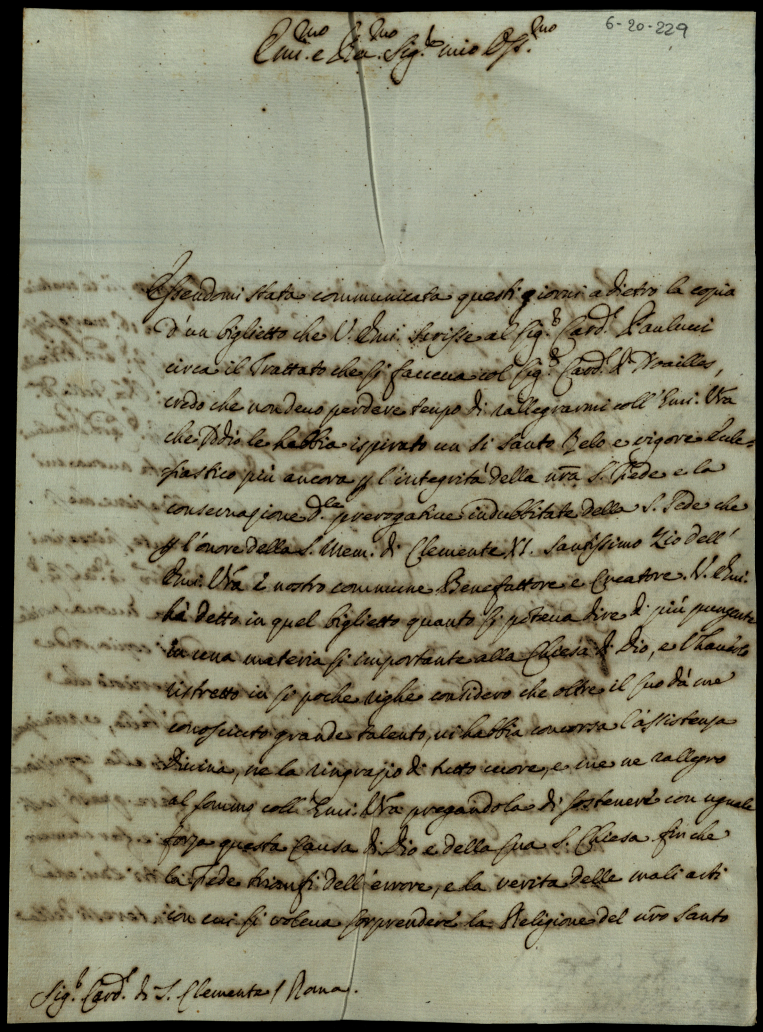 6-20-229
Em.mo e Rev.mo Sig.r mio Oss.mo
Essendomi stata communicata questi giorni adietro la copia
d'un biglietto che V. Em. scrisse al Sig.r Card.l Paulucci
circa il Trattato che si faceva col Sig.r Card.l di Noailles,
credo che non devo perdere tempo di rallegrarmi coll'Em. Vra
che Iddio le habbia ispirato un si santo Zelo e vigore Eccle=
siastico più ancora p l'integrità della nra S. Fede e la
conservazione d.le prerogative indubbitate della S. Sede che
p l'onore della S. Mem. di Clemente XI. Santissimo Zio dell'
Em. Vra è nostro commune Benefattore e Creatore. V. Em.
hà detto in quel biglietto quanto si poteva dire di più pungente
in una materia si importante alla Chiesa di Dio, e l'haverlo
ristretto in si poche righe considero che oltre il suo dà me
conosciuto grande talento, vi habbia concorsa l'assistenza
Divina, ne la ringrazio di tutto cuore, e me ne rallegro
al sommo coll'Em. Vra pregandola di sostenere con uguale
forza questa Causa di Dio e della sua S. Chiesa finche
la Fede trionfi dell'errore, e la verità delle mali arti
con cui si voleva sorprendere la Religione del nro Santo
Sig.r Card.l di S. Clemente / Roma.